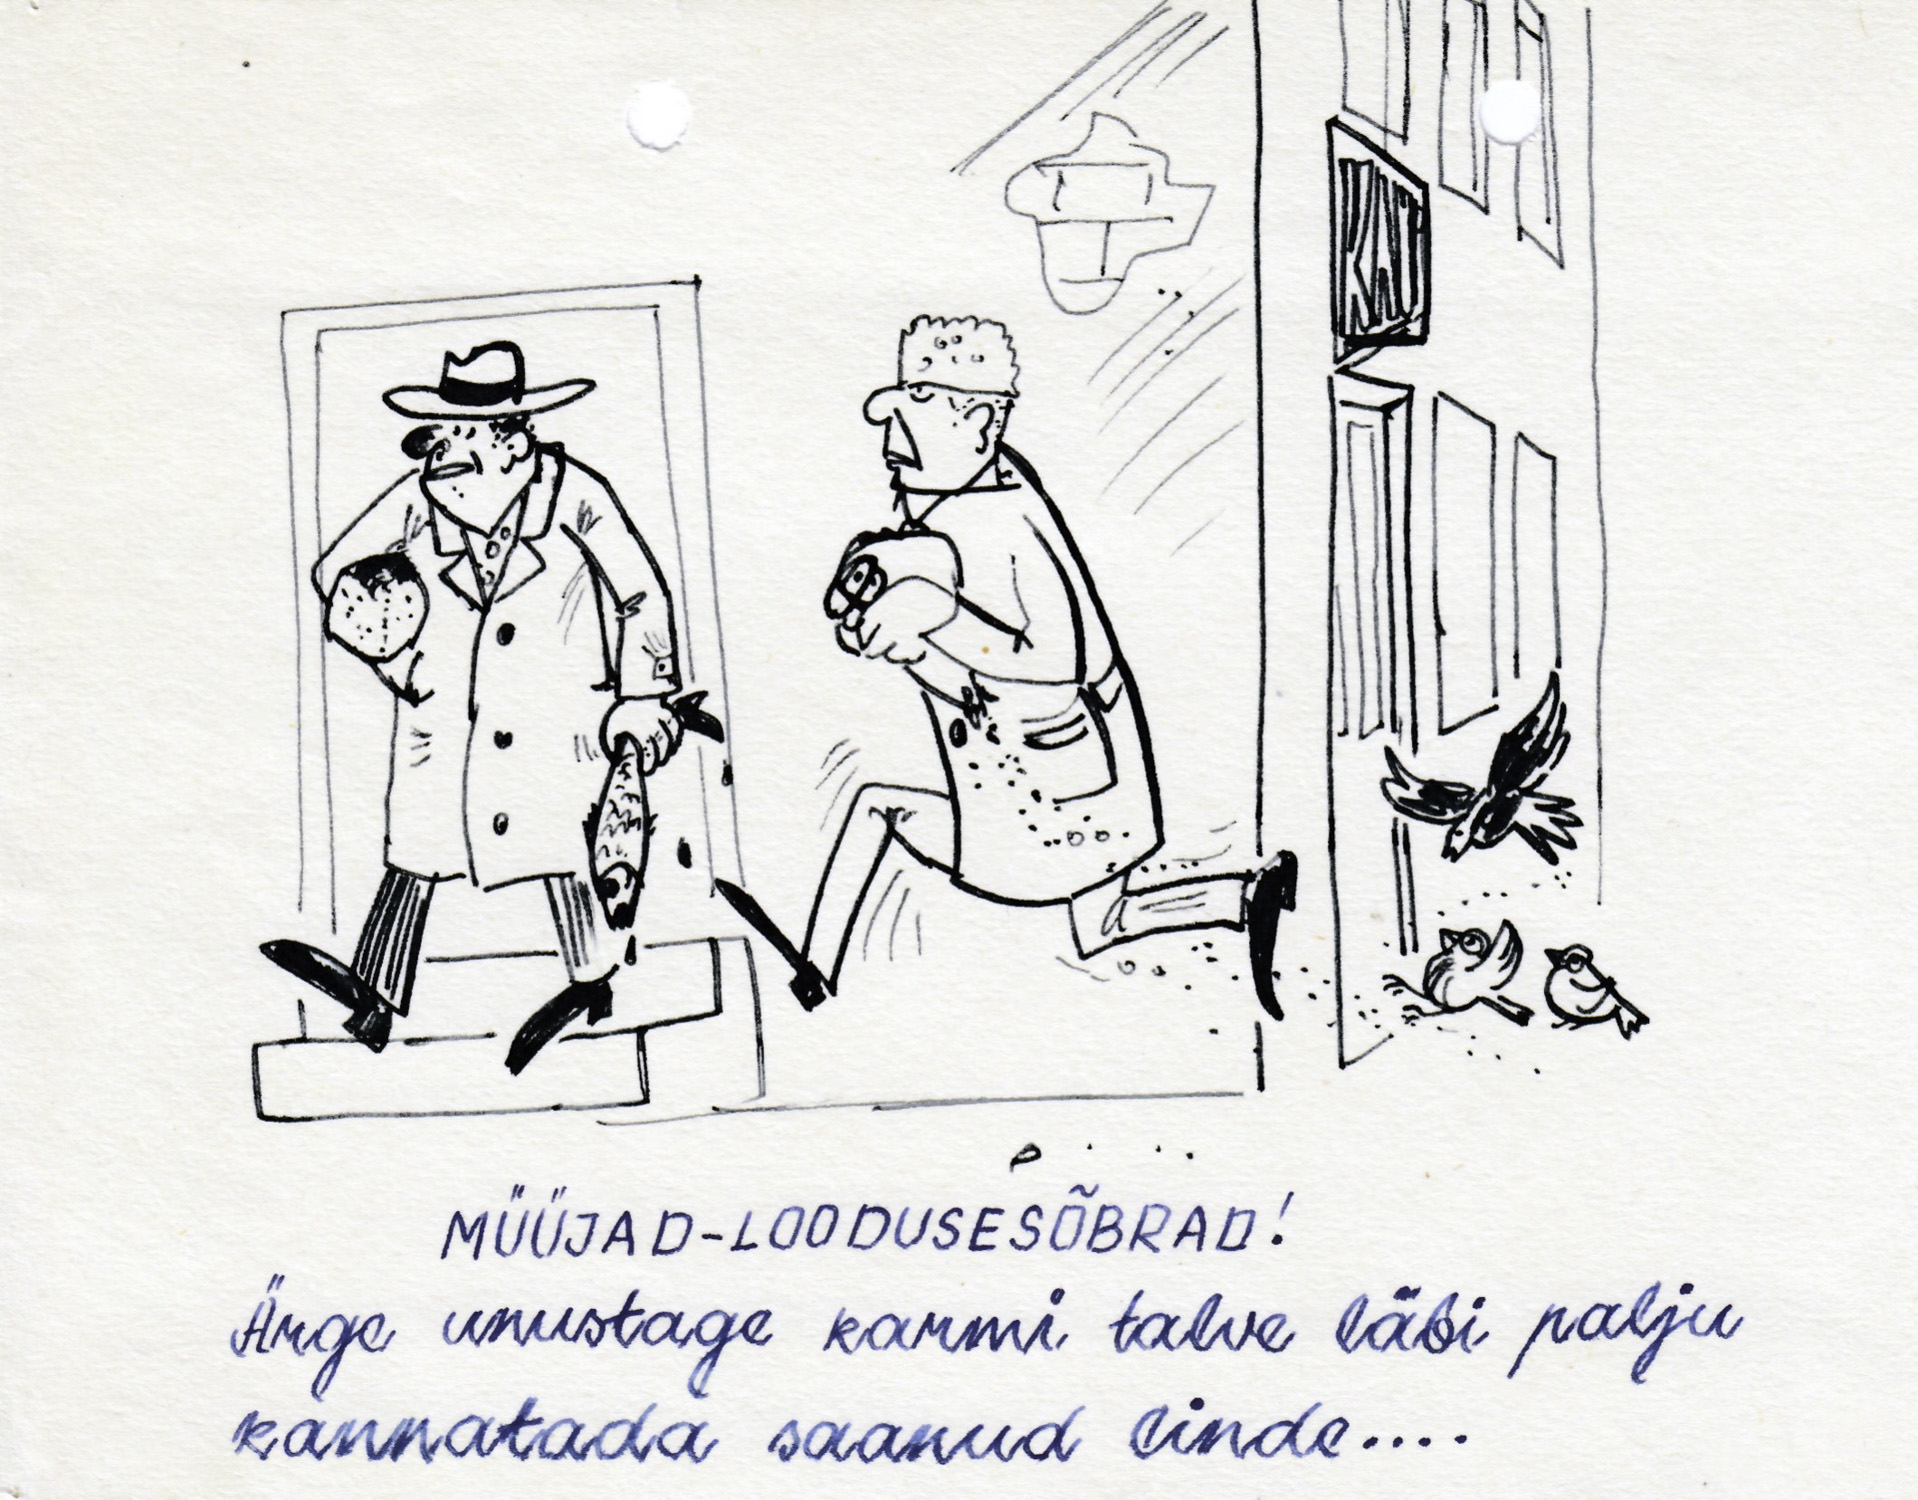 MÜÜJAD-LOODUSESÕBRAD!
Ärge unustage karmi talve läbi palju
kannatada saanud linde....